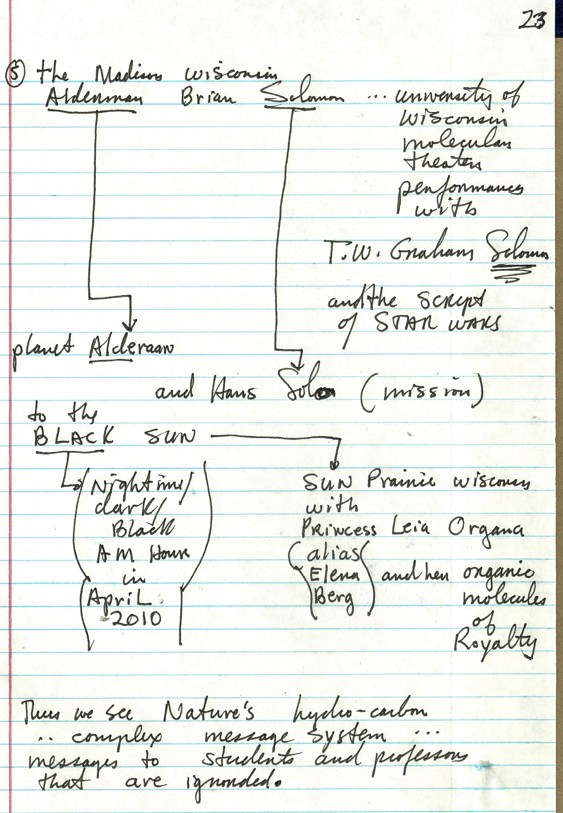 23
⑤ the Madison wisconsin
Alderman Brian Solomon ... university of
wisconsin
molecular
theater
performances
with
T.W. Graham Solomon
and the script
of STAR WARS
planet Alderaan
and Hans Solo (mission)
to the
BLACK SUN
(Nightime/
dark/
Black
AM Hour
in
April
2010)
SUN Prairie wisconsin
with
Princess Leia Organa
(alias
Elena
Berg) and her organic
molecules
of
Royalty
Thus we see Nature's hydro-carbon
.. complex message system ...
messages to students and professors
that are ignorded.